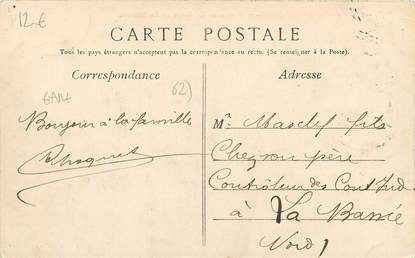 12 €
CARTE POSTALE
Tous les pays étrangers n'acceptent pas la correspondance au recto. (Se renseigner à la Poste).
Correspondance
Adresse
62)
Bonjour à la famille
Mr. Masclef fils
Chez son père
Contrôleur des Cont. Ind
à La Bassée
Nord